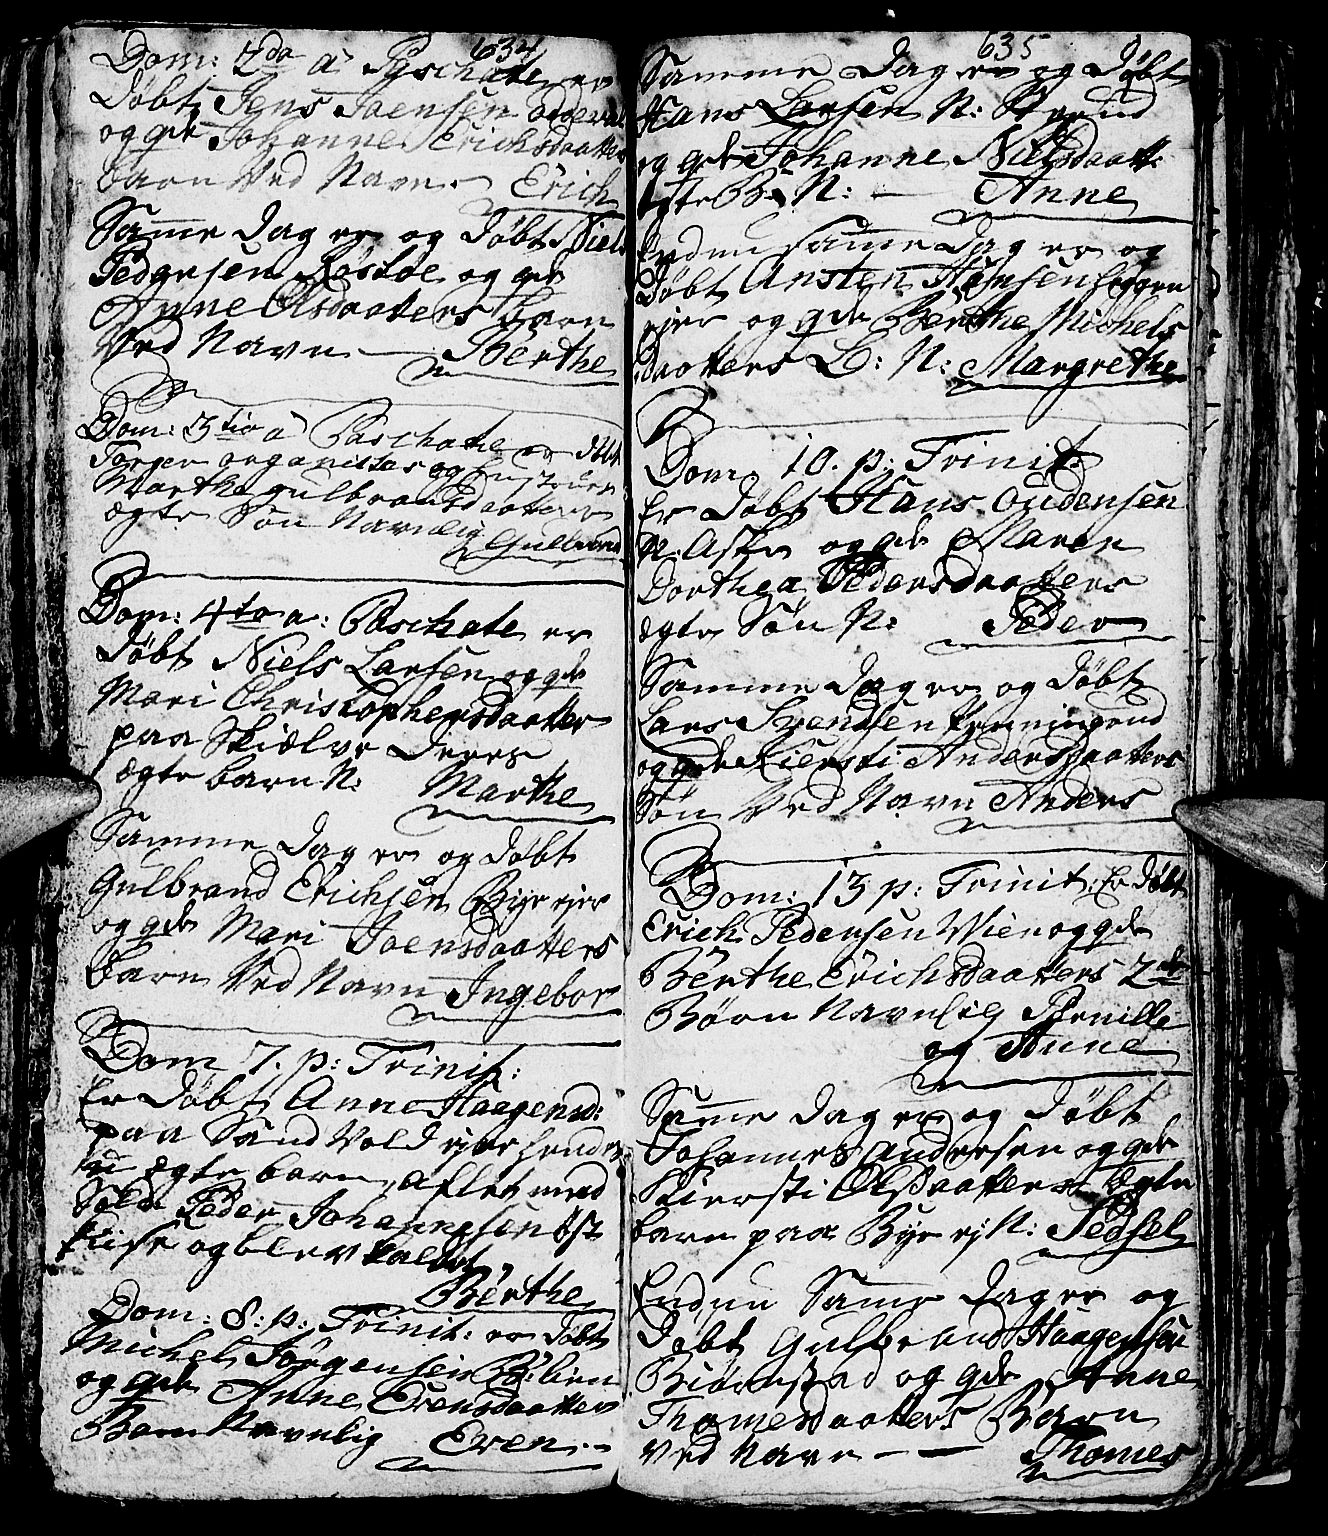 634
Dom: 2da a Paschate er
døbt Jens Joensen
og qde Johanne Erichsdaatter
barn Ved Navn - Erich
Samme dag er og døbt Niels
Pedersen Røstøe og qde
Anne Olsdaatters barn
Ved Navn — Berthe
Dom: 3tia a Paschate er døbt
Torger organistes og
Marthe gulbrandsdaatters
ægte Søn Navnlig Gulbrand
Dom: 4ta a: Paschate er
døbt Niels Larsen og qde
Mari Christophersdaatter
paa Skiælve deres
ægte barn N: Marthe
Samme dag er og døbt
Gulbrand Erichsen Bye ejer
og qde Mari Joensdaatters
barn Ved Navn Ingebor
Dom 7. p: Trinit:
Er døbt Anne Haagensd:
paa Sand Vold ejer hendes
u ægte barn, aflet med
Sold: Peder Johannesen Øst
og blev kaldet,
Berthe
Dom: 8: p: Trinit: er døbt
Michel Jørgensen Bølien
og qde Anne Evensdaatter
Barn Navnlig Even -
635
Samme dag er og døbt
Hans Larsen N: Strand
og qde Johanne Nielsdaatt:
ægte B: N: — Anne
Endnu samme dag er og
døbt Ansten Hansen
ejer og qde Berthe Michels
daatters B: N: Margrethe
Dom 10. p: Trinit
Er døbt Hans Oudensen
N: Aske og qde Maren
Dorthea Pedersdaatters
ægte Søn N: Peder
Samme dag er og døbt
Lars Svendsen
og qde Kiersti Andersdaatters
Søn Ved Navn Anders
Dom: 13 p: Trinit: Er døbt
Erich Pedersen Wien og qde
Berthe Erichsdaatters 2de
Børn Navnlig Pernille
og Anne
Samme dag er og døbt
Johannes Andersen og qde
Kiersti Olsdaatters ægte
barn paa Bye ej N: Sedsel
Endnu Samme dag er og
døbt Gulbrand Haagensen
Biørnstad og qde Anne
Thomesdaatters Barn
Ved Navn - — Thomes